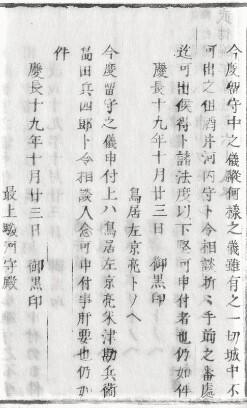 今度留守中之儀縱何樣之儀雖有之一切城中不
可出之但酒井河內守ト令相談折々手前之番處
迄可出候得ト諸法度以下堅可申付者也仍如件
慶長十九年十月廿三日　御黒印
鳥居左京亮トノヘ
今度留守之儀申付上ハ鳥居左京亮米津勘兵衛
嶋田兵四郎ト令相談入念可申付事肝要也仍如
件
慶長十九年十月廿三日　御黒印
最上駿河守殿